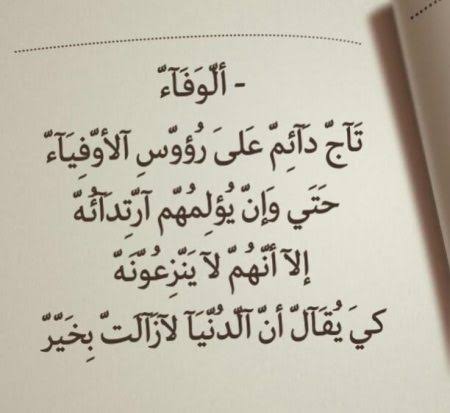 - ألّوَفَآءّ
تَآجّ دَآئِمّ عَلَىَ رُؤوّسِ آلأوّفِيَآءّ
حَتَي وَإنّ يُؤلِمهُهّم آرّتِدآئُهّ
إلآ أنّهُمّ لآ يَنّزِعُوّنَهّ
كيَ يُقَآلّ أنّ آلّدُنّيَآ لآزَآلَتّ بِخَيّرّ